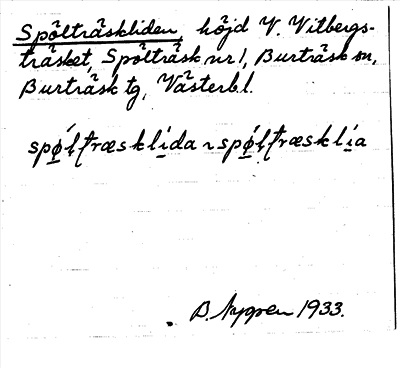 Spölträskliden, höjd V. Vitbergs-
träsket, Spölträsk nr 1, Burträsk sn,
Burträsk tg, Västerb l.
spǿḷtræsklìda ~ spǿḷtræsklìa
B. Nygren 1933.